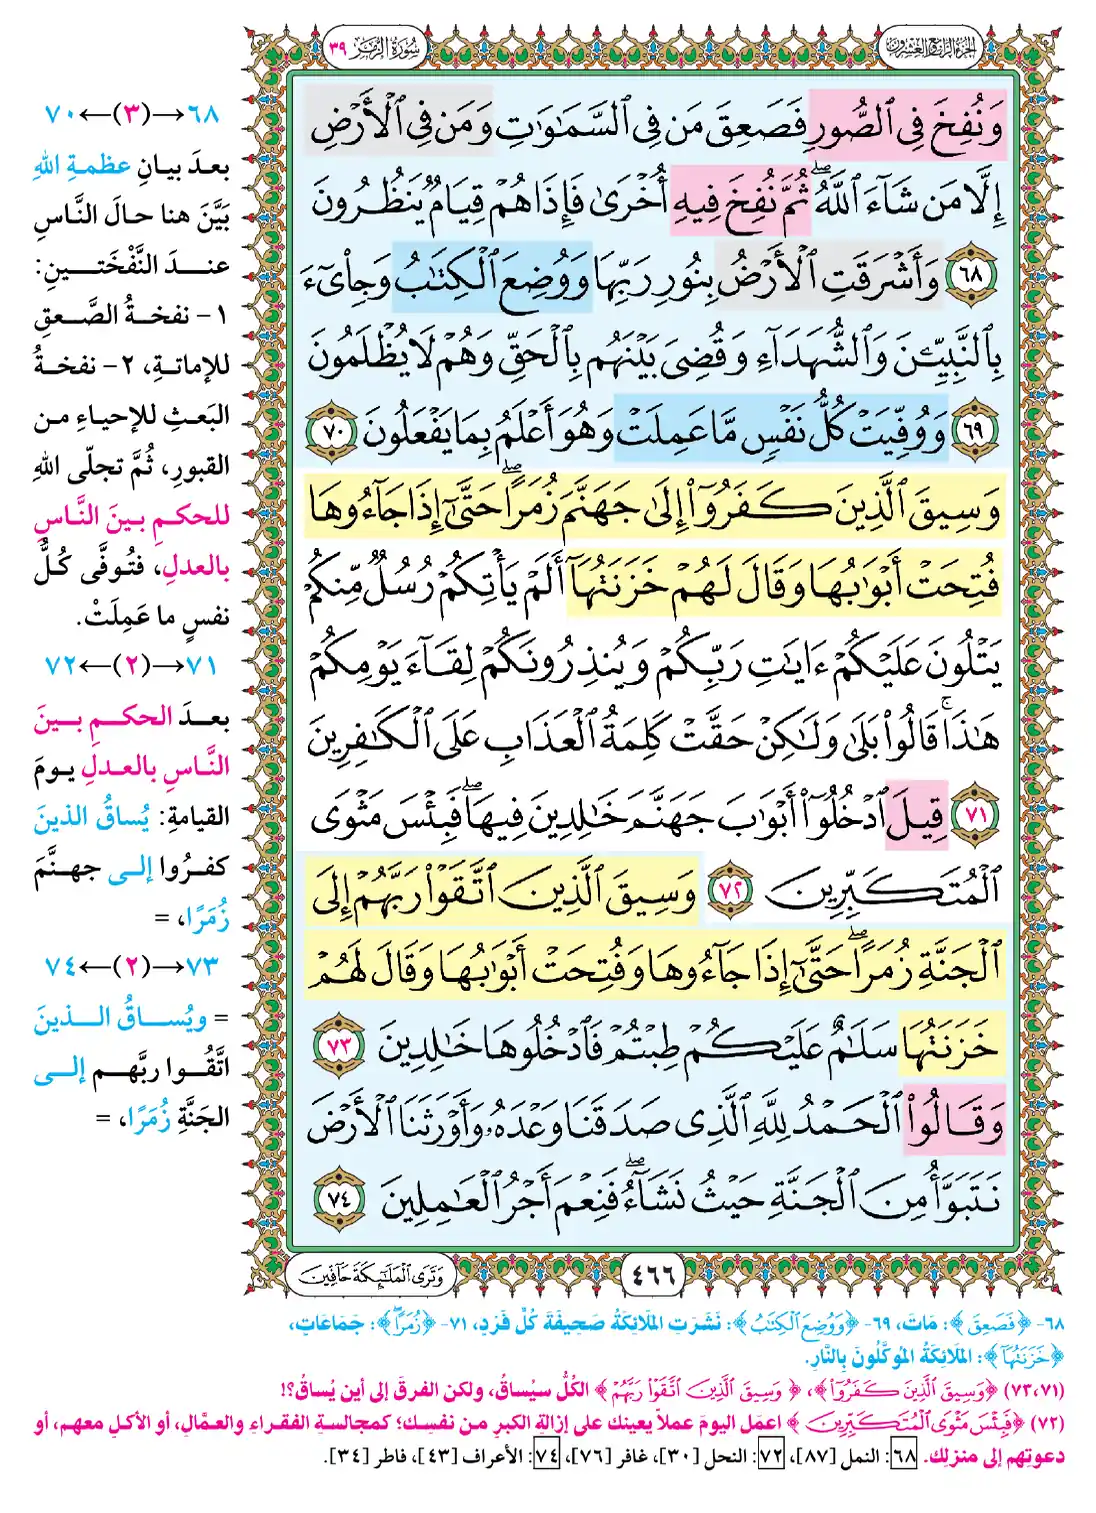 الجزء الرابع العشرون
سورة الزمر ٣٩
وَنُفِخَ فِي ٱلصُّورِ فَصَعِقَ مَن فِي ٱلسَّمَٰوَٰتِ وَمَن فِي ٱلْأَرْضِ
إِلَّا مَن شَآءَ ٱللَّهُۖ ثُمَّ نُفِخَ فِيهِ أُخْرَىٰ فَإِذَا هُمْ قِيَامٌ يَنظُرُونَ
٦٨ وَأَشْرَقَتِ ٱلْأَرْضُ بِنُورِ رَبِّهَا وَوُضِعَ ٱلْكِتَٰبُ وَجِا۟ىٓءَ
بِٱلنَّبِيِّـۧنَ وَٱلشُّهَدَآءِ وَقُضِىَ بَيْنَهُم بِٱلْحَقِّ وَهُمْ لَا يُظْلَمُونَ
٦٩ وَوُفِّيَتْ كُلُّ نَفْسٍ مَّا عَمِلَتْ وَهُوَ أَعْلَمُ بِمَا يَفْعَلُونَ ٧٠
وَسِيقَ ٱلَّذِينَ كَفَرُوٓا۟ إِلَىٰ جَهَنَّمَ زُمَرًاۖ حَتَّىٰٓ إِذَا جَآءُوهَا
فُتِحَتْ أَبْوَٰبُهَا وَقَالَ لَهُمْ خَزَنَتُهَآ أَلَمْ يَأْتِكُمْ رُسُلٌ مِّنكُمْ
يَتْلُونَ عَلَيْكُمْ ءَايَٰتِ رَبِّكُمْ وَيُنذِرُونَكُمْ لِقَآءَ يَوْمِكُمْ
هَٰذَاۚ قَالُوا۟ بَلَىٰ وَلَٰكِنْ حَقَّتْ كَلِمَةُ ٱلْعَذَابِ عَلَى ٱلْكَٰفِرِينَ
٧١ قِيلَ ٱدْخُلُوٓا۟ أَبْوَٰبَ جَهَنَّمَ خَٰلِدِينَ فِيهَاۖ فَبِئْسَ مَثْوَى
ٱلْمُتَكَبِّرِينَ ٧٢ وَسِيقَ ٱلَّذِينَ ٱتَّقَوْا۟ رَبَّهُمْ إِلَى
ٱلْجَنَّةِ زُمَرًاۖ حَتَّىٰٓ إِذَا جَآءُوهَا وَفُتِحَتْ أَبْوَٰبُهَا وَقَالَ لَهُمْ
خَزَنَتُهَا سَلَٰمٌ عَلَيْكُمْ طِبْتُمْ فَٱدْخُلُوهَا خَٰلِدِينَ ٧٣
وَقَالُوا۟ ٱلْحَمْدُ لِلَّهِ ٱلَّذِى صَدَقَنَا وَعْدَهُۥ وَأَوْرَثَنَا ٱلْأَرْضَ
نَتَبَوَّأُ مِنَ ٱلْجَنَّةِ حَيْثُ نَشَآءُۖ فَنِعْمَ أَجْرُ ٱلْعَٰمِلِينَ ٧٤
٤٦٦
وَتَرَى ٱلْمَلَٰٓئِكَةَ حَآفِّينَ
٦٨→(٣)←٧٠
بعدَ بيانِ عظمةِ اللهِ
بَيَّنَ هنا حالَ النَّاسِ
عندَ النَّفْخَتينِ:
١- نفخةُ الصَّعقِ
للإماتةِ، ٢- نفخةُ
البَعثِ للإحياءِ من
القبورِ، ثُمَّ تجلّى اللهِ
للحكمِ بينَ النَّاسِ
بالعدلِ، فتُوفَّى كُلُّ
نفسٍ ما عَمِلَتْ.
٧١→(٢)←٧٢
بعدَ الحكمِ بينَ
النَّاسِ بالعدلِ يومَ
القيامةِ: يُساقُ الذينَ
كفرُوا إلى جهنَّمَ
زُمَرًا، =
٧٣→(٢)←٧٤
= ويُساقُ الذينَ
اتَّقُوا ربَّهم إلى
الجَنَّةِ زُمَرًا، =
٦٨- ﴿فَصَعِقَ﴾: مَاتَ، ٦٩- ﴿وَوُضِعَ ٱلْكِتَٰبُ﴾: نَشَرَتِ المَلَائِكَةُ صَحِيفَةَ كُلِّ فَرْدٍ، ٧١- ﴿زُمَرًاۖ﴾: جَمَاعَاتٍ،
﴿خَزَنَتُهَآ﴾: المَلَائِكَةُ المُوَكَّلُونَ بِالنَّارِ.
(٧٣،٧١) ﴿وَسِيقَ ٱلَّذِينَ كَفَرُوٓا۟﴾، ﴿وَسِيقَ ٱلَّذِينَ ٱتَّقَوْا۟ رَبَّهُمْ﴾ الكُلُّ سيُساقُ، ولكن الفرقَ إلى أين يُساقُ؟!
(٧٢) ﴿فَبِئْسَ مَثْوَى ٱلْمُتَكَبِّرِينَ﴾ اعمَل اليومَ عملاً يعينك على إزالةِ الكبرِ من نفسِك؛ كمجالسةِ الفقراءِ والعمَّالِ، أو الأكلِ معهم، أو
دعوتِهم إلى منزلِك. ٦٨: النمل [٨٧]، ٧٢: النحل [٣٠]، غافر [٧٦]، ٧٤: الأعراف [٤٣]، فاطر [٣٤].